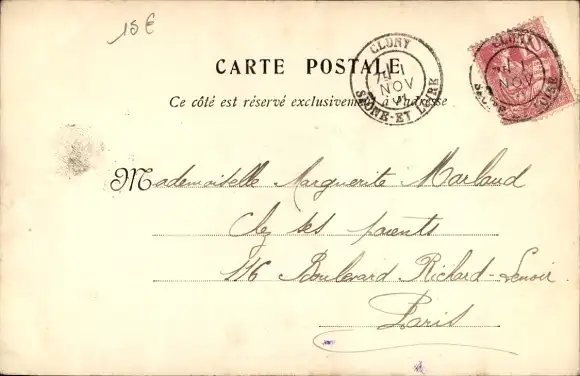 15 €
CARTE POSTALE
Ce côté est réservé exclusivement à l'adresse
CLUNY
NOV
SAONE-ET-LOIRE
CLUNY
NOV
10
Mademoiselle Marguerite Marlaud
Chez ses parents
116 Boulevard Richard-Lenoir
Paris